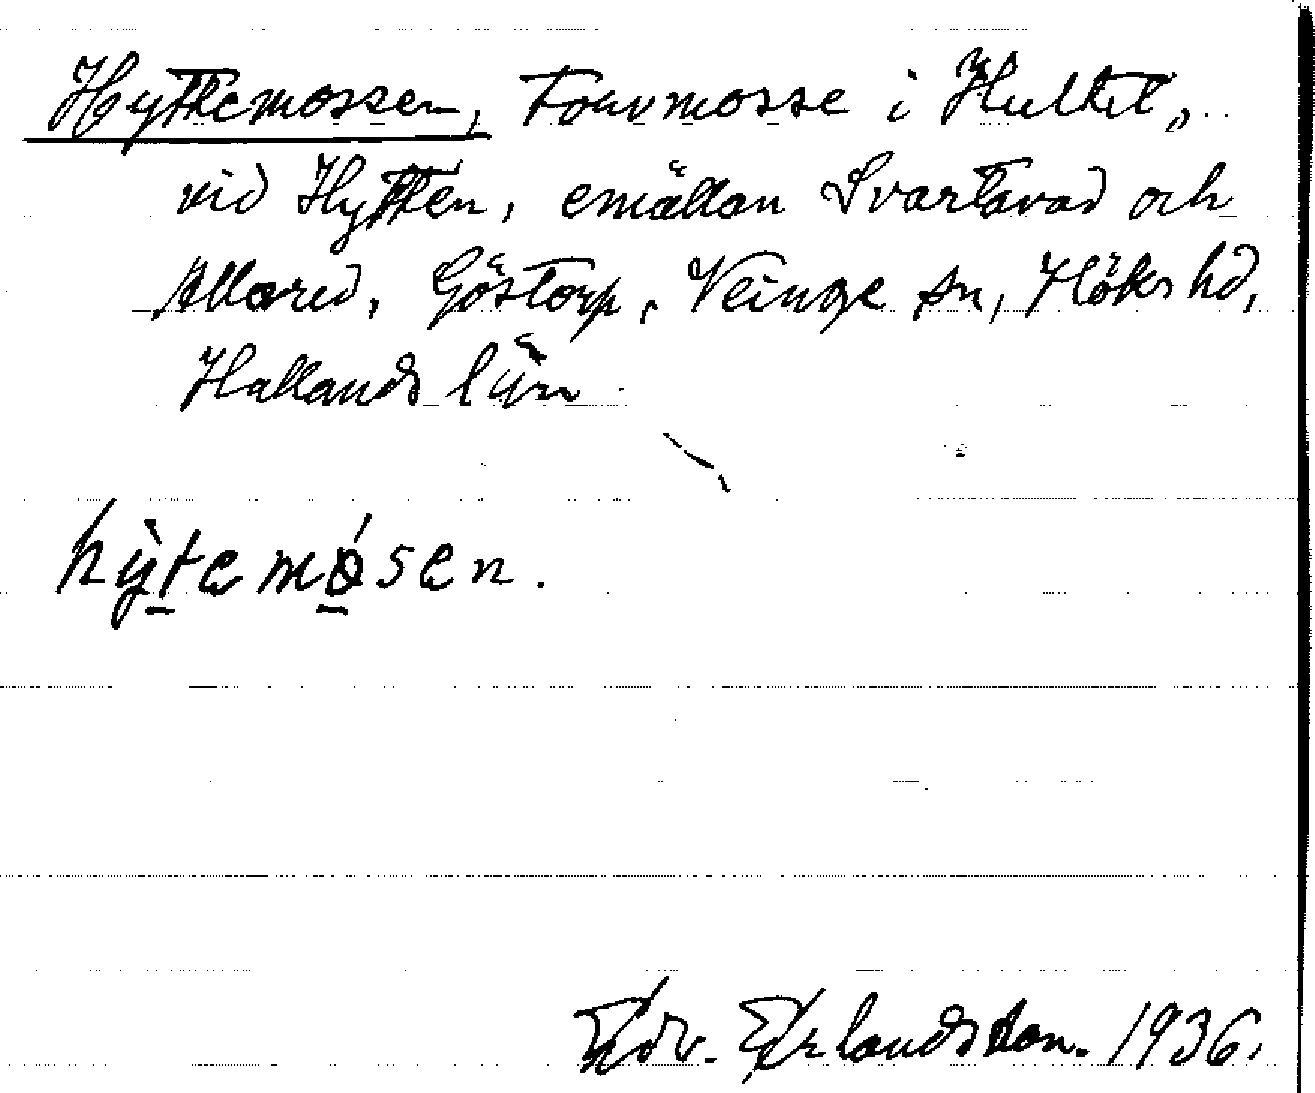 Hyttemossen, Torvmosse i Hultet,
vid Hyttén, emällan Svartavad och
Allared, Göstorp, Veinge sn, Höks hd,
Hallands län
hỳtemósen.
Edv. Erlandsson. 1936.